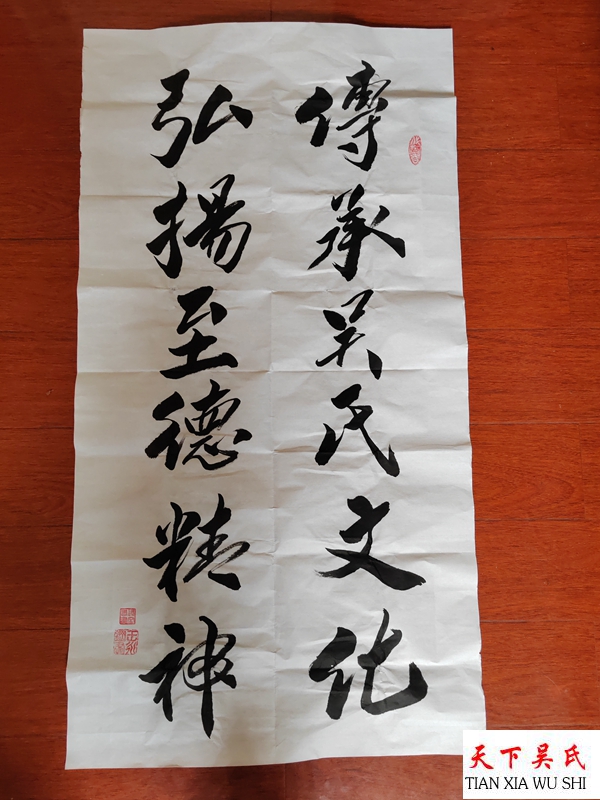 傳承吴氏文化
弘揚至德精神
天下吴氏
TIAN XIA WU SHI